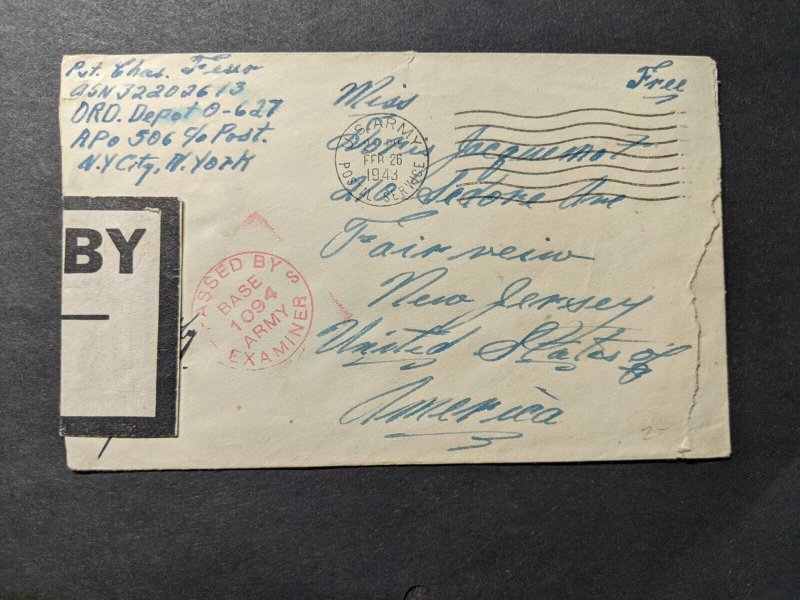 Pvt. Chas.
ASN 32202613
ORD. Depot O-627
APO 506 c/o Post.
N.Y City, N. York
Free
Miss
Doris Jacquemot
Sedore Ave
Fairveiw
New Jersey
United States of
America
U.S. ARMY
FEB 26
1943
POSTAL SERVICE
BY
PASSED BY
BASE
1094
ARMY
EXAMINER
2-